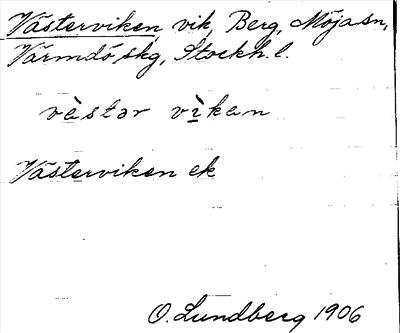 Västerviken, vik, Berg, Möja sn,
Värmdö skg, Stockh. l.
vàstər vìkan
Västerviken ek
O. Lundberg 1906